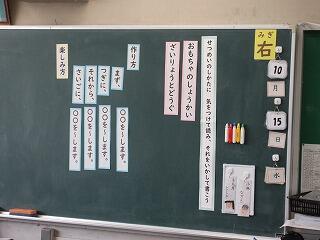 みぎ
右
10
月
15
日
水
せつめいのしかたに 気をつけて読み、それをいかして書こう
おもちゃのしょうかい
ざいりょうとどうぐ
作り方
まず、
〇〇を〜します。
つぎに、
〇〇を〜します。
それから、
〇〇を〜します。
さいごに、
〇〇を〜します。
楽しみ方